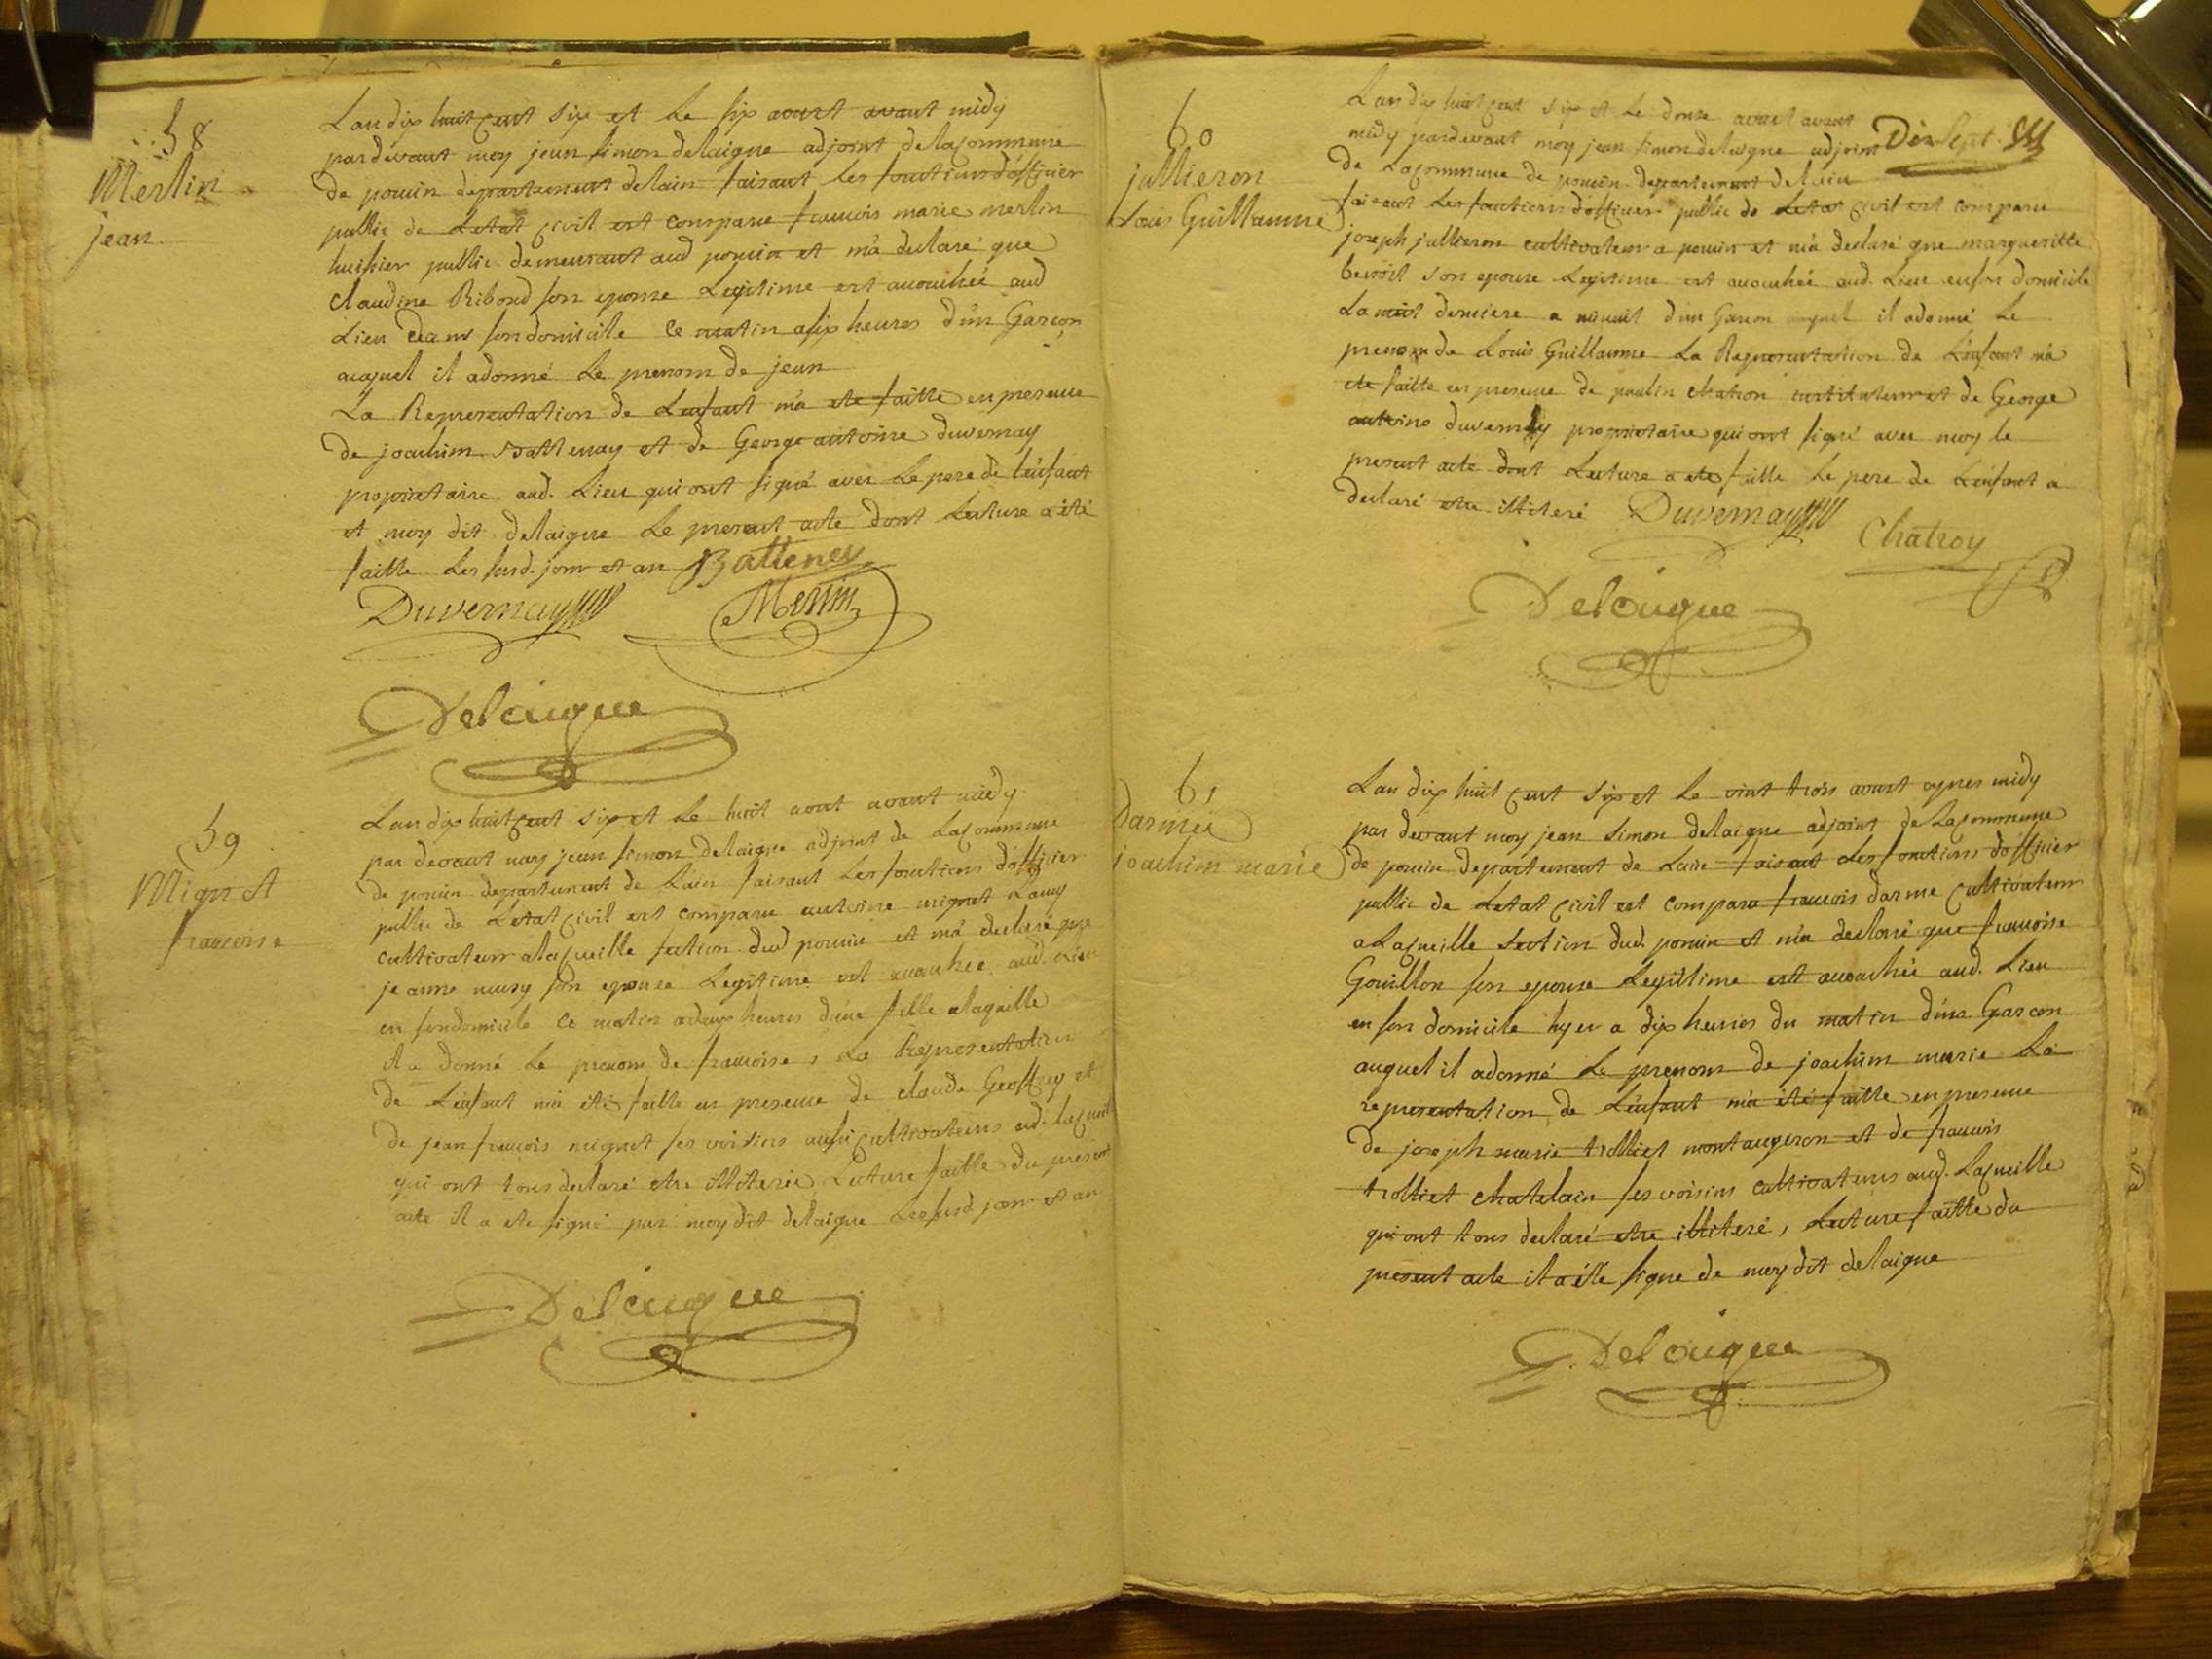 58
Merlin
jean
Lan dix huit cent six et Le six aoust avant midy
pardevant moy jean simon delaigne adjoint de la commune
de poncin departement de lain faisant Les fonctions d'officier
public de Letat civil est comparu francois marie merlin
huissier public demeurant aud poncin et m'a declaré que
claudine Ribond son epouse Legitime est accouchée aud
Lieu dans son domicile ce matin a six heures d'un Garcon
auquel il a donné Le prenom de jean
La Representation de Lenfant m'a ete faitte en presence
de joachim Battenay et de George antoine duvernay
proprietaire aud. Lieu qui ont signé avec Le pere de l'enfant
et moy dit delaigue Le present acte dont Lecture a été
faitte Les susd. jour et an Batteney
Duvernay Merlin
Delaigue
59
Mignot
francoise
Lan dix huit cent six et Le huit aout avant midy
par devant moy jean simon delaigue adjoint de La commune
de poncin departement de Lain faisant Les fonctions d'officier
public de Letat civil est comparu antoine mignot Lamy
cultivateur a lacueille section dud poncin et m'a declaré que
jeanne son epouse Legitime est accouchée aud. Lieu
en son domicile ce matin a deux heures d'une fille a laquelle
il a donné Le prenom de francoise, La Representation
de L'enfant m'a été faitte en presence de claude Geoffrey et
de jean francois mignot ses voisins aussi cultivateurs ad. lacueille
qui ont tous declaré etre illiteré Lecture faitte du present
acte il a ete signé par moy dit delaigue Les susd jour et an
Delaigue
60
jullieron
Louis Guillaume
Lan dix huit cent six et Le douze aoust avant
midy pardevant moy jean simon delaigne adjoint Dix Sept
de La commune de poncin departement de lain
faisant Les fonctions d'officier public de Letat civil est comparu
joseph jullieron cultivateur a poncin et m'a declaré que margueritte
benoit son epouse Legitime est accouchée aud. Lieu en son domicile
La nuit derniere a minuit d'un Garcon auquel il a donné Le
prenom de Louis Guillaume La Representation de L'enfant m'a
ete faitte en presence de paulin chatron instituteur et de George
antoine duvernay proprietaire qui ont signé avec moy le
present acte dont Lecture a ete faitte Le pere de L'enfant a
declaré etre illiteré Duvernay
Chatroy
Delaigue
61
Darmei
joachim marie
Lan dix huit cent six et Le vint trois aoust apres midy
par devant moy jean simon delaigue adjoint de La commune
de poncin departement de Lain faisant Les fonctions d'officier
public de Letat civil est comparu francois darme cultivateur
a Lacueille section dud. poncin et m'a declaré que francoise
Gouillon son epouse Legitime est accouchée aud. Lieu
en son domicile hyer a dix heures du matin d'un Garcon
auquel il a donné Le prenom de joachim marie La
representation de L'enfant m'a été faitte en presence
de joseph marie trolliet montaugeron et de francois
trolliet chatelain ses voisins cultivateurs aud. Lacueille
qui ont tous declaré etre illiteré, Lecture faitte du
present acte il a été signe de moy dit delaigue
Delaigue